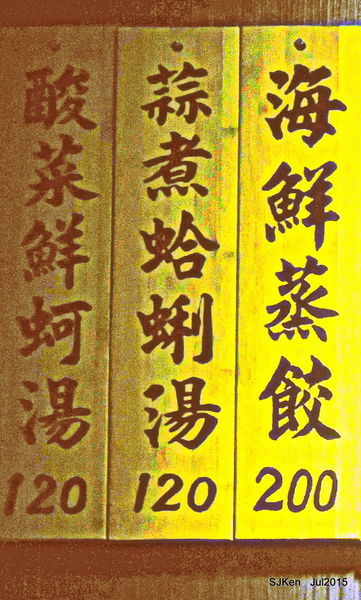 海鮮蒸餃
200
蒜煮蛤蜊湯
120
酸菜鮮蚵湯
120
SJKen Jul2015